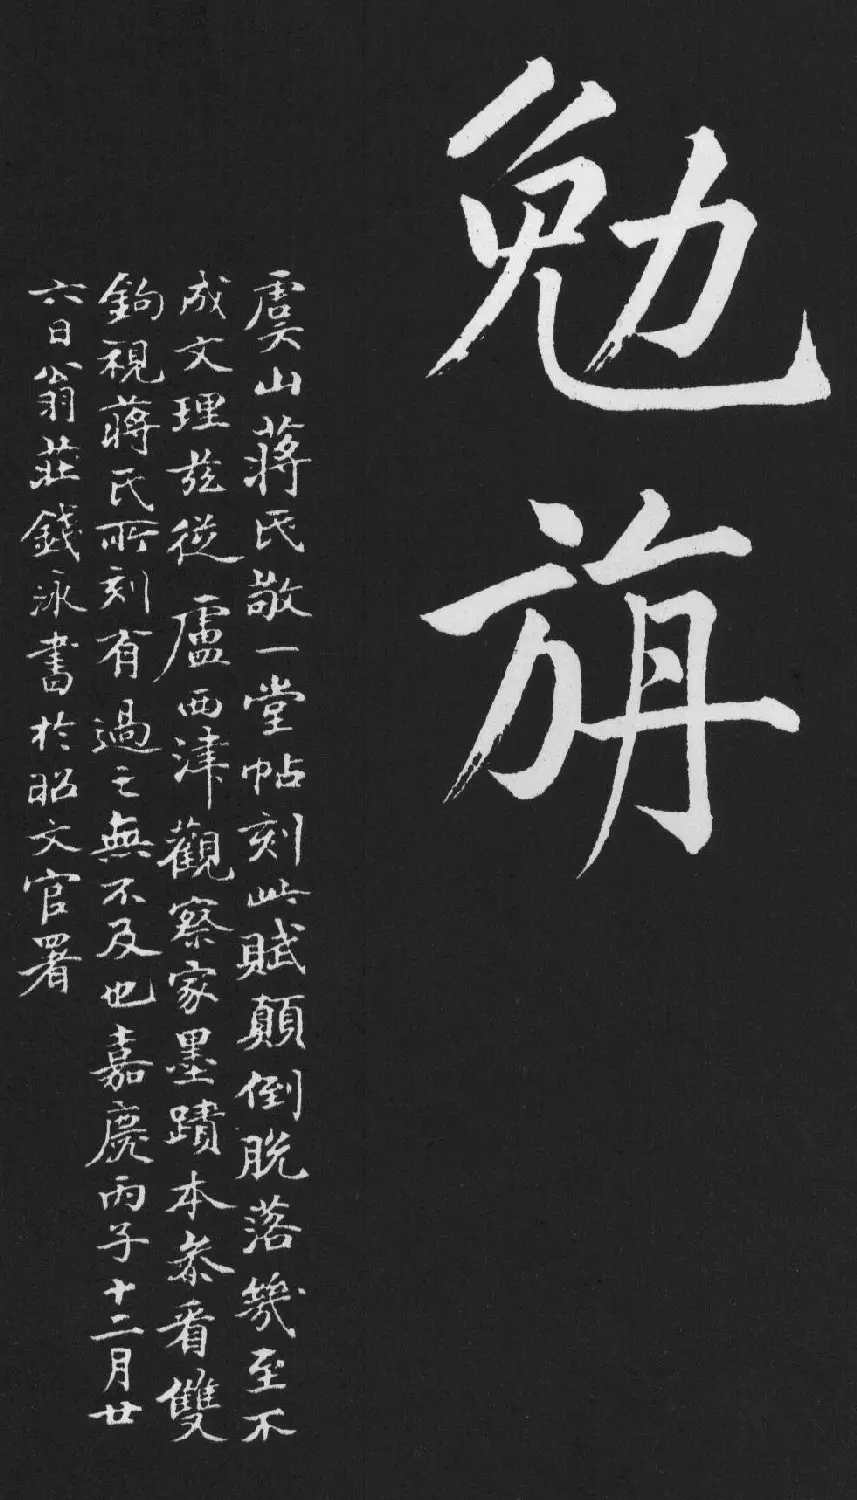 勉旃
虞山蔣氏敬一堂帖刻此賦顛倒脫落幾至不
成文理茲從盧西津觀察家墨蹟本叅看雙
鉤視蔣氏所刻有過之無不及也嘉慶丙子十二月廿
六日翁莊錢泳書於昭文官署